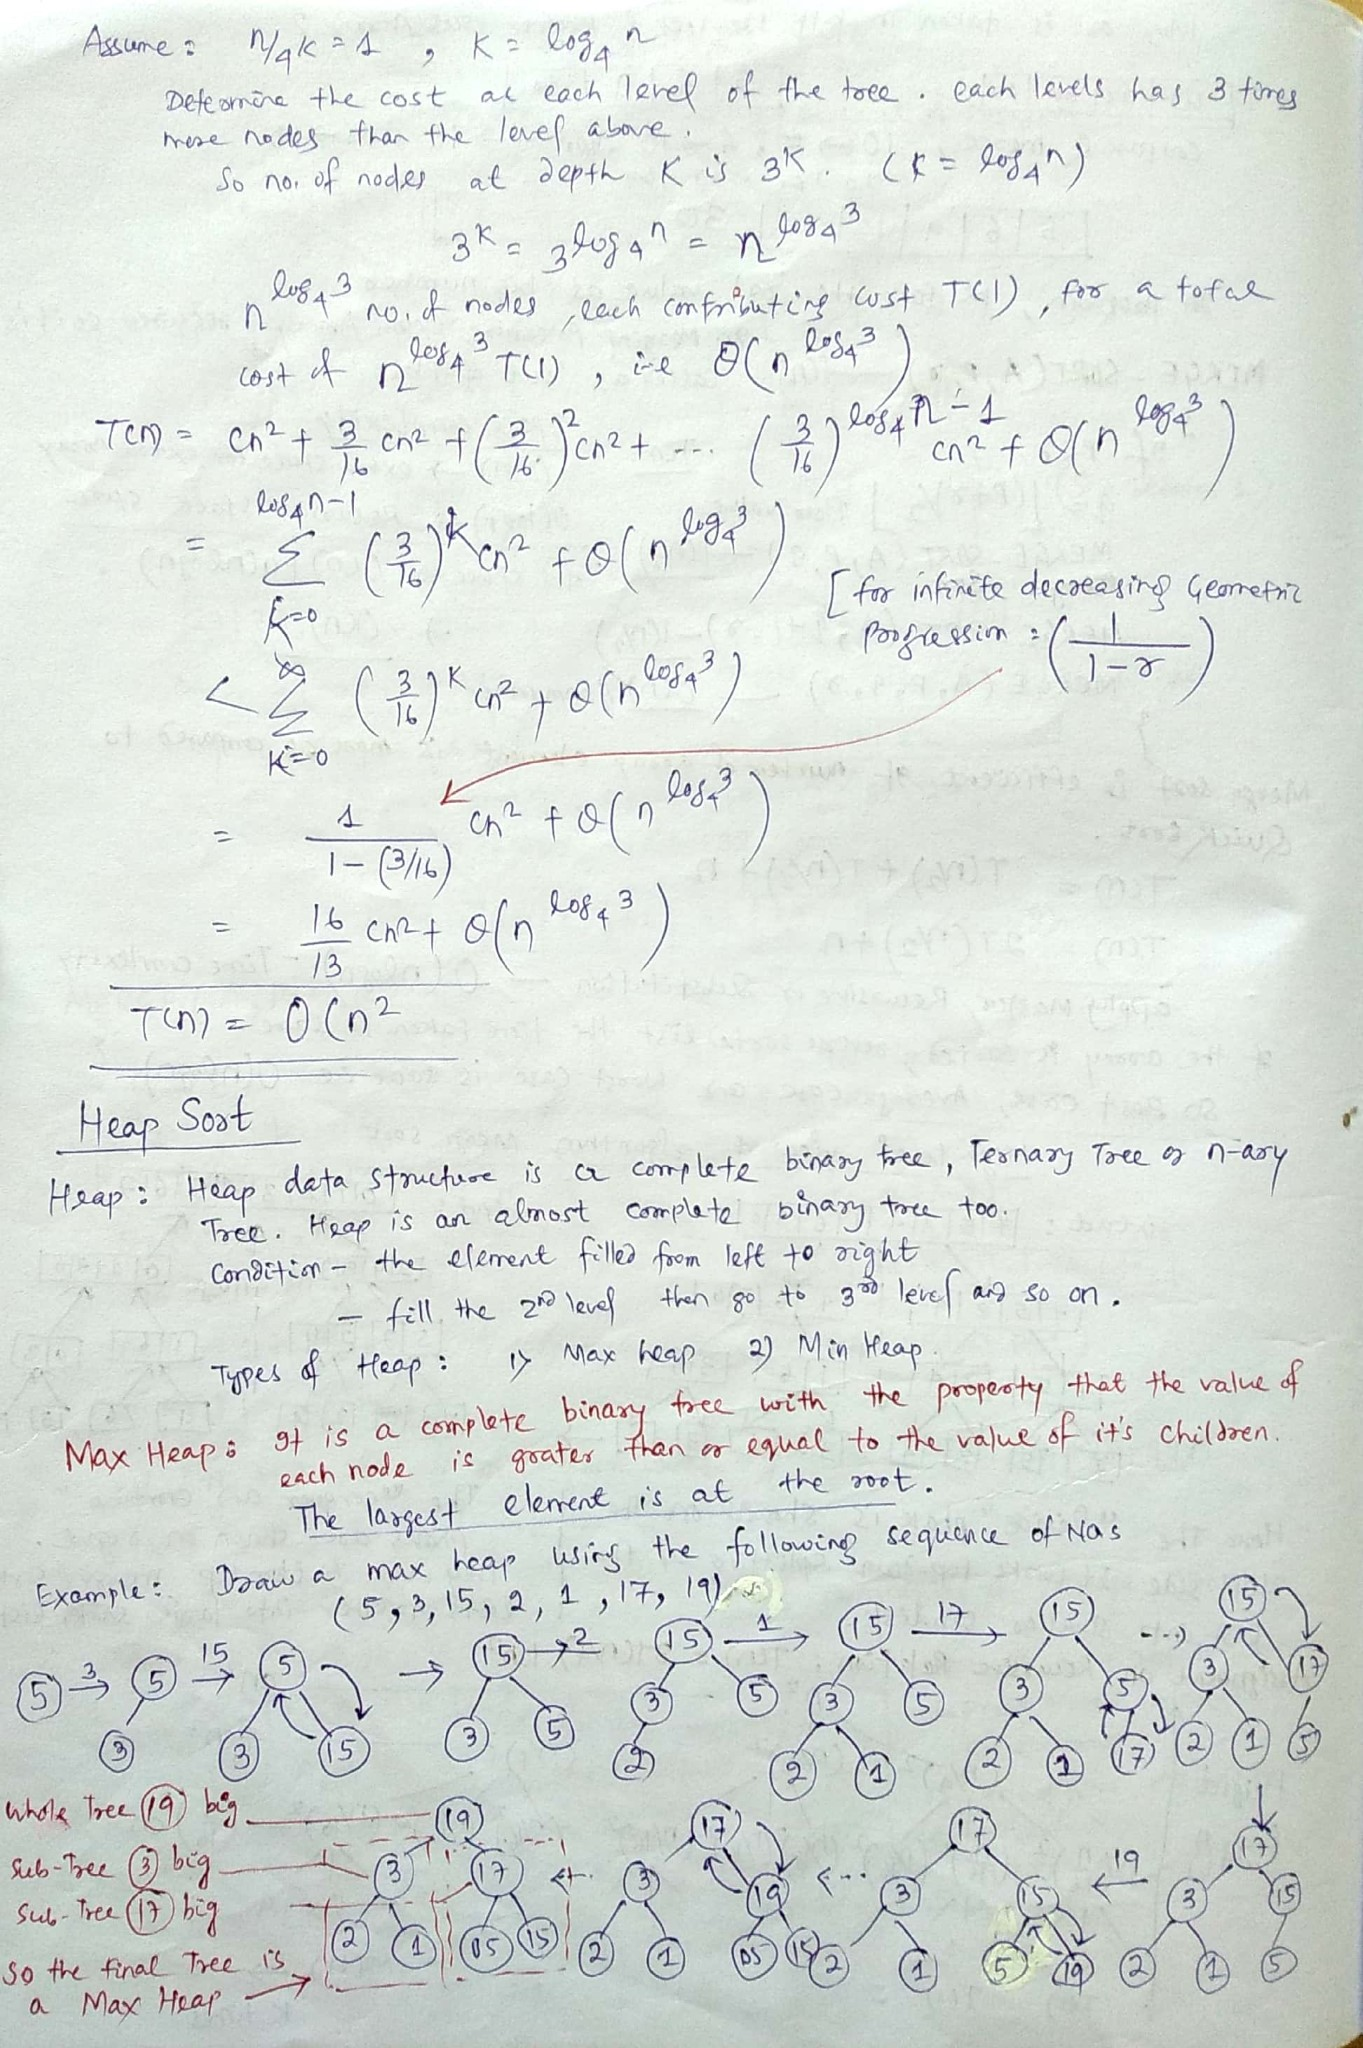 Assume : n/4k = 1 , K = log₄ n
Determine the cost at each level of the tree . each levels has 3 times
more nodes than the level above .
So no. of nodes at depth K is 3ᴷ . (K = log₄n)
3ᴷ = 3^log₄n = n^log₄3
n^log₄3 no. of nodes , each contributing cost T(1) , for a total
cost of n^log₄3 T(1) , i.e Θ(n^log₄3)
T(n) = cn² + 3/16 cn² + (3/16)² cn² + ... (3/16)^(log₄n-1) cn² + Θ(n^log₄3)
= Σ_{K=0}^{log₄n-1} (3/16)^K cn² + Θ(n^log₄3)
[ for infinite decreasing Geometric
Progression = (1/(1-r))
< Σ_{K=0}^{∞} (3/16)^K cn² + Θ(n^log₄3)
= 1/(1-(3/16)) cn² + Θ(n^log₄3)
= 16/13 cn² + Θ(n^log₄3)
T(n) = O(n²
Heap Sort
Heap : Heap data structure is a complete binary tree , Ternary Tree or n-ary
Tree . Heap is an almost complete binary tree too.
Condition - the element filled from left to right
- fill the 2nd level then go to 3rd level and so on .
Types of Heap : 1) Max heap 2) Min Heap .
Max Heap : It is a complete binary tree with the property that the value of
each node is grater than or equal to the value of it's children.
The largest element is at the root .
Example : Draw a max heap using the following sequence of Nos
(5, 3, 15, 2, 1, 17, 19)
5 3 5 15 5 15 2 15 1 15 17 15 15
3 3 15 3 5 3 5 3 5 3 5 3 17
2 2 1 2 1 17 2 1 5
whole Tree 19 big 19 17 17 17
Sub-Tree 3 big 3 17 3 19 3 15 19 3 15
Sub-Tree 17 big 2 1 05 15 2 1 05 15 2 1 5 19 2 1 5
So the final Tree is
a Max Heap